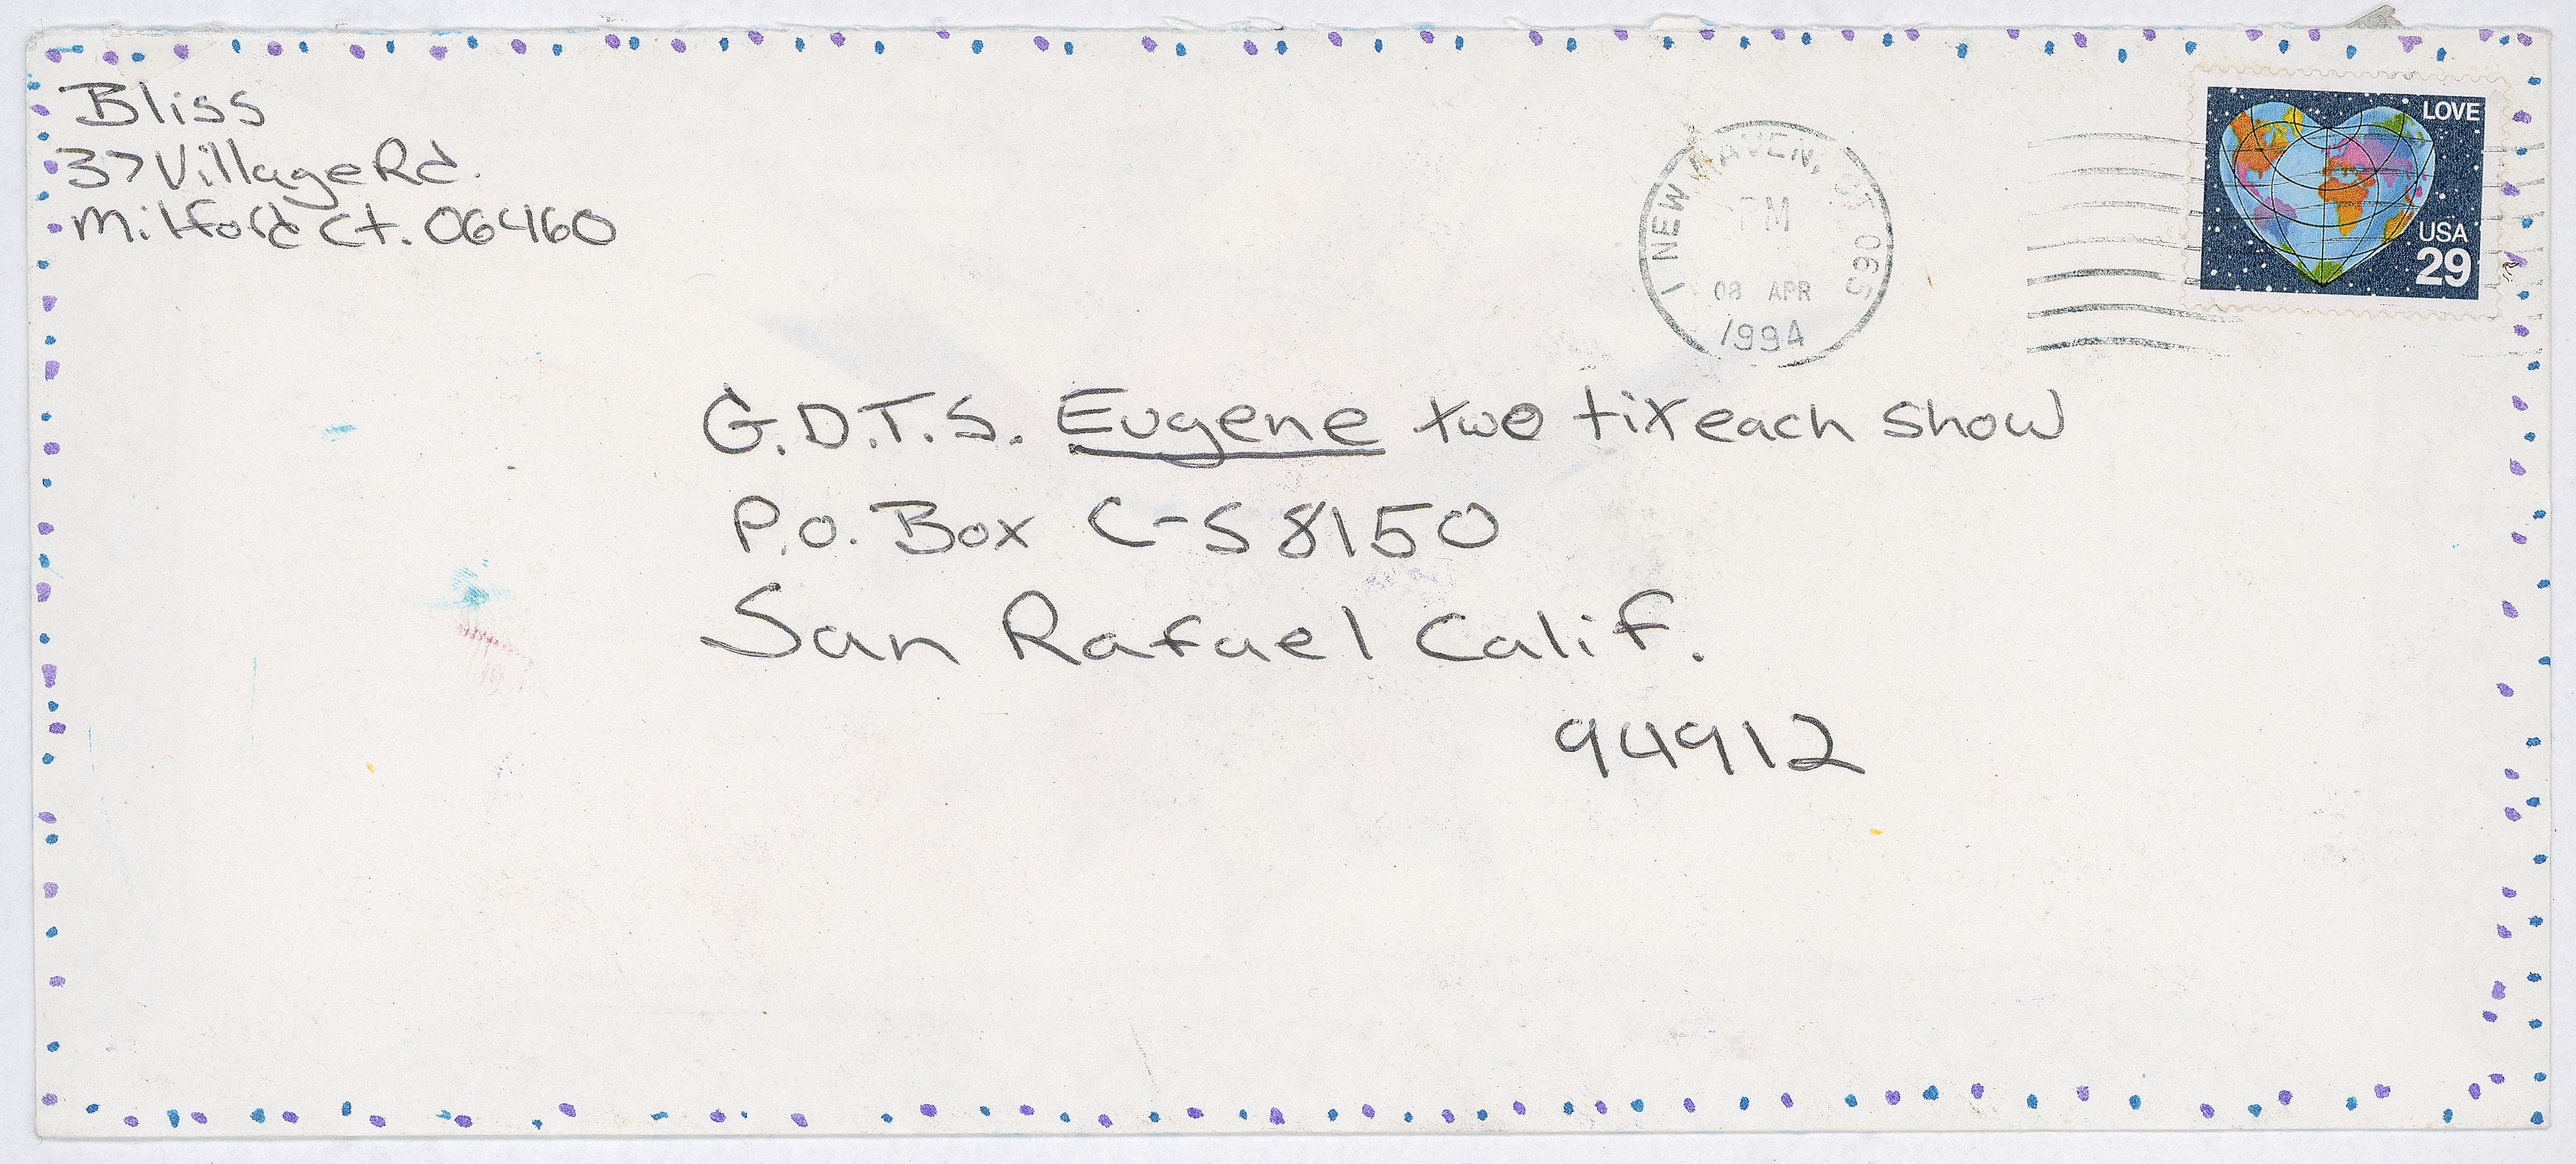 Bliss
37 Village Rd.
Milford Ct. 06460
NEW HAVEN, CT 065
PM
08 APR
1994
LOVE
USA
29
G.D.T.S. Eugene two tix each show
P.O. Box C-S 8150
San Rafael Calif.
94912